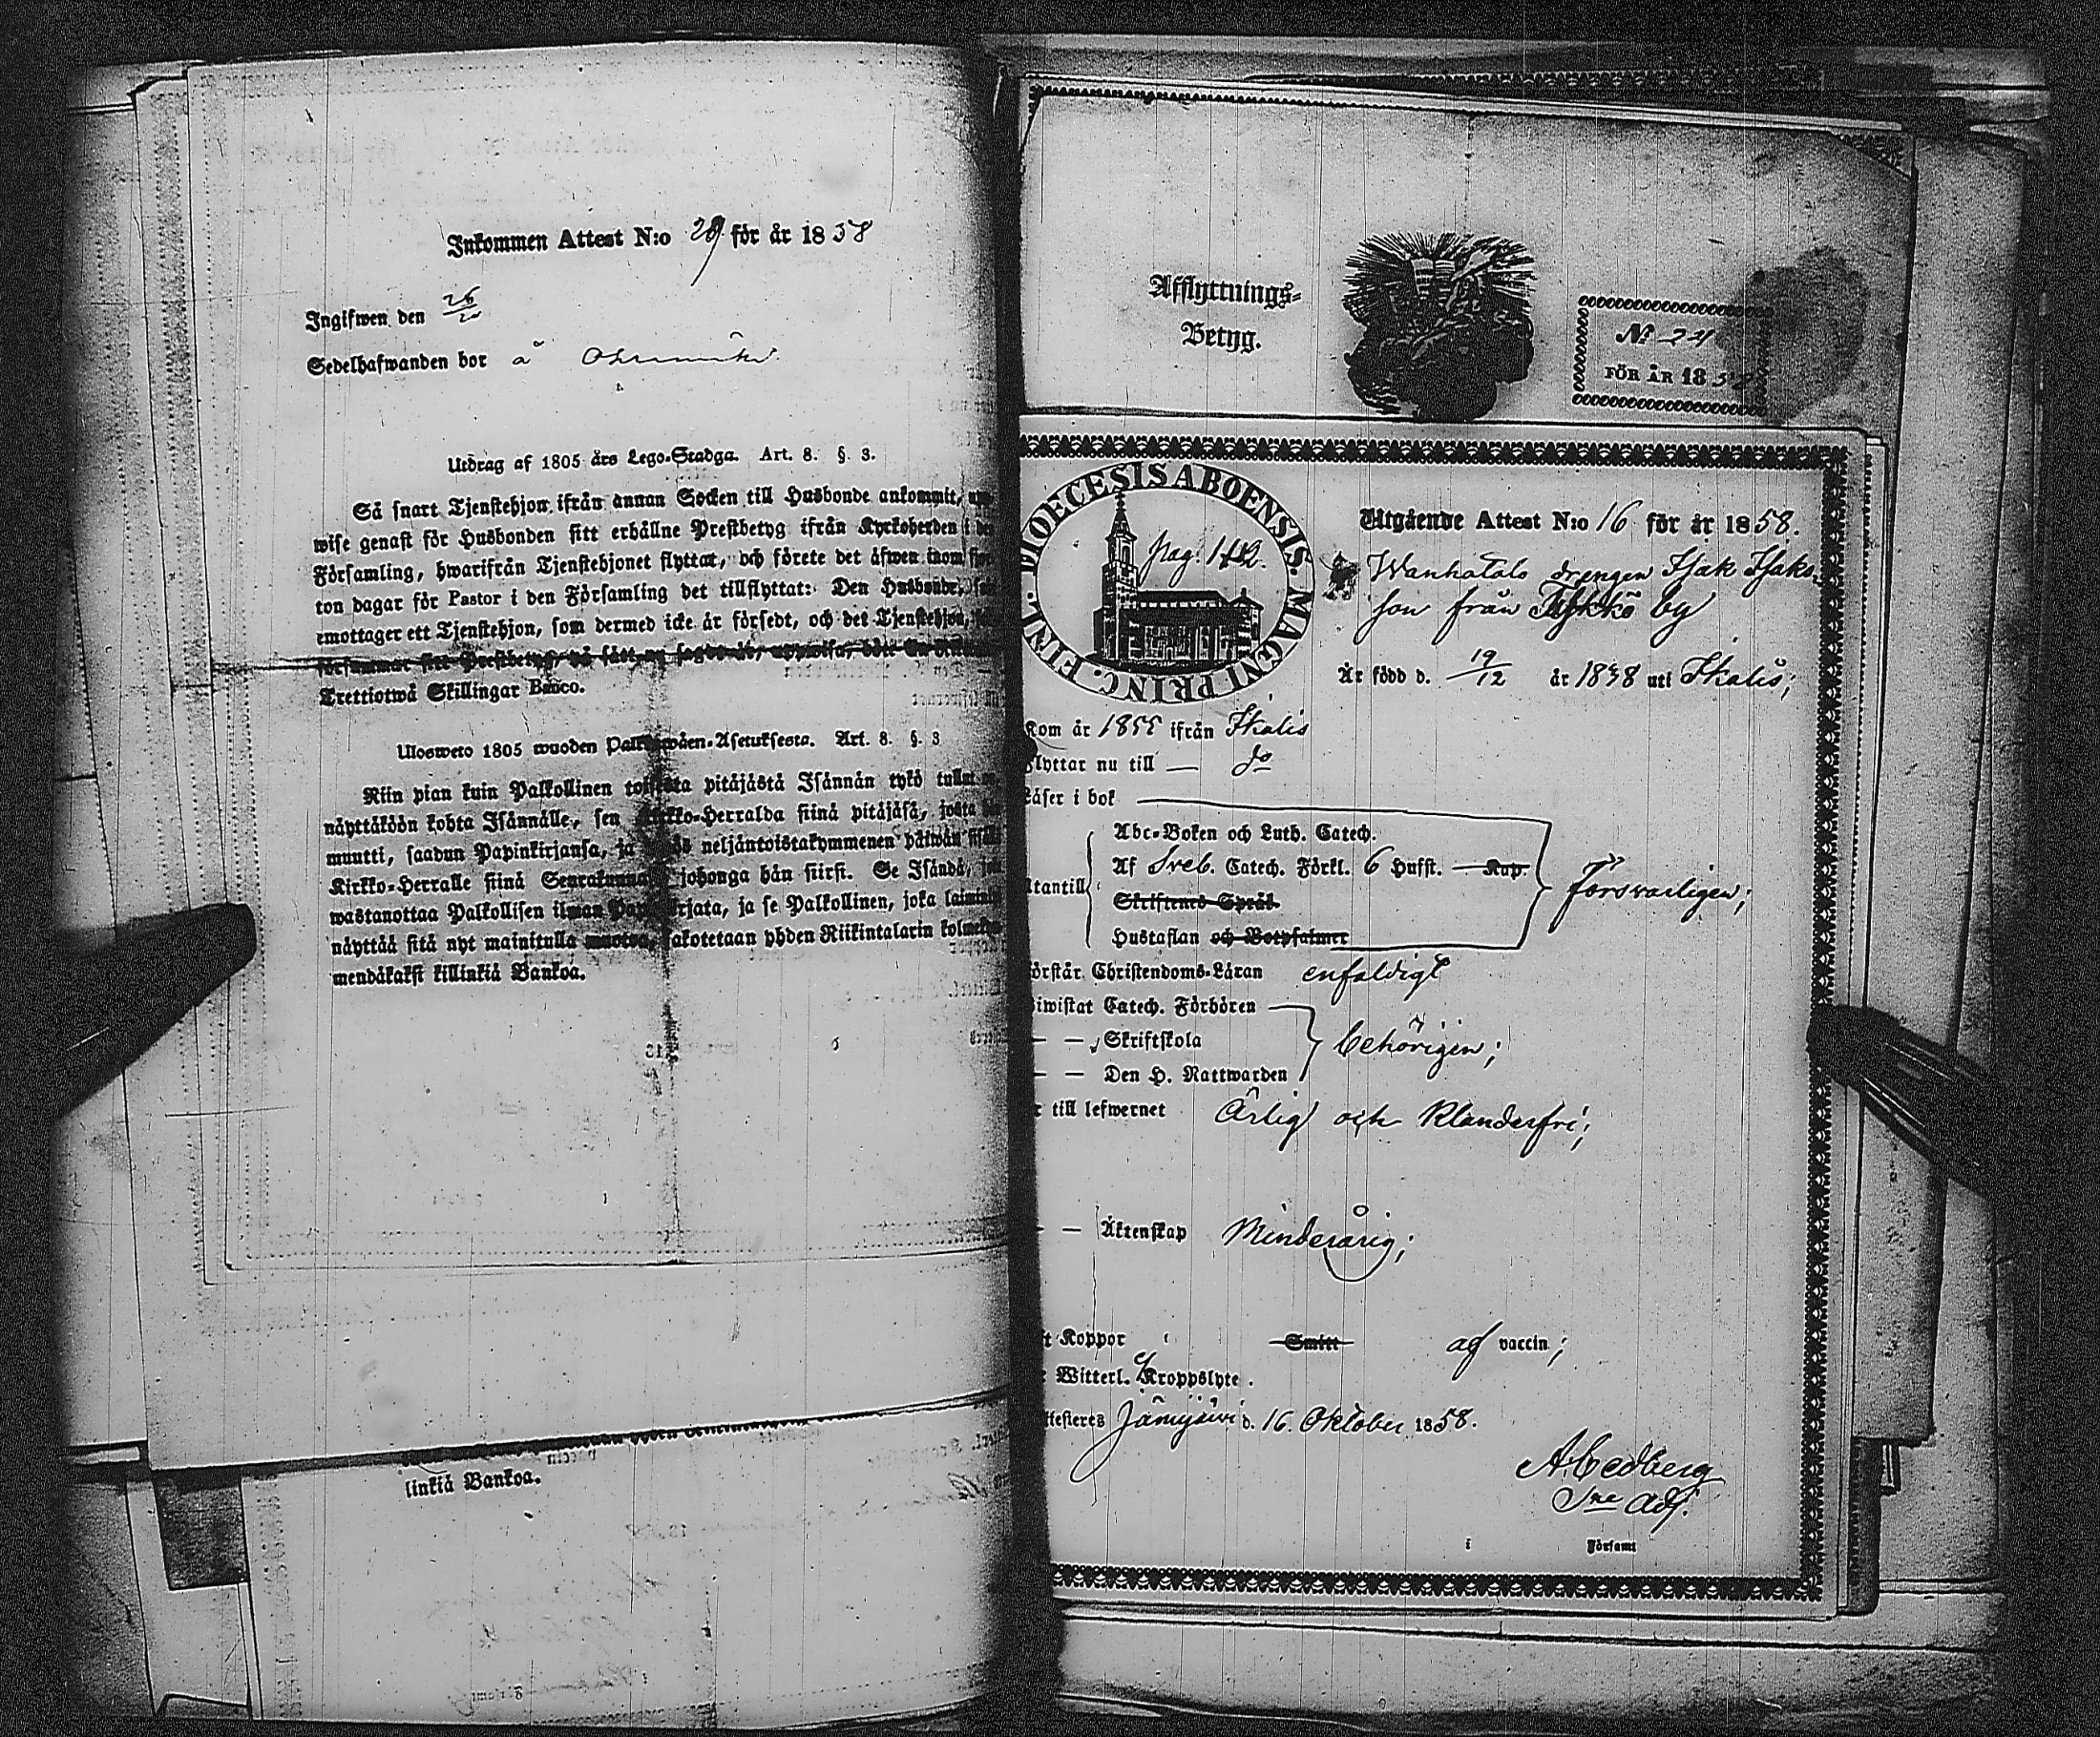 Inkommen Attest N:o 29 för år 1858
Ingifwen den 26/10
Sedelhafwanden bor å
Utdrag af 1805 års Lego-Stadga. Art. 8. §. 3.
Så snart Tjenstehjon ifrån annan Socken till Husbonde ankommit,
wise genast för Husbonden sitt erhållne Prestbetyg ifrån Kyrkoherden i
Församling, hwarifrån Tjenstehjonet flyttat, och förete det äfwen inom
ton dagar för Pastor i den Församling det tillflyttat: Den Husbonde,
emottager ett Tjenstehjon, som dermed icke är försedt, och det Tjenstehjon,
försummar sitt Prestbetyg, på sätt nu sagdt är, uppwisa, böte
Trettiotwå Skillingar Banco.
Ulosweto 1805 wuoden Palkkawäen-Asetuksesta. Art. 8. §. 3
Niin pian kuin Palkollinen toisesta pitäjästä Isännän tykö tullut
näyttäköön kohta Isännälle, sen Kirkko-Herralda siinä pitäjäsä, josta
muutti, saadun Papinkirjansa, ja neljäntoistakymmenen päiwän
Kirkko-Herralle siinä Seurakunnassa johonga hän siirsi. Se Isändä,
wastanottaa Palkollisen ilman Papinkirjata, ja se Palkollinen, joka
näyttää sitä nyt mainitulla muotoa, sakotetaan yhden Riikintalarin
mendäkaksi killinkiä Bankoa.
linkiä Bankoa.
Afflyttnings-
Betyg.
№ 24
FÖR ÅR 1858
DIOECESIS ABOENSIS. MAGNI PRINC. FINL.
pag. 142.
Utgående Attest N:o 16 för år 1858.
Wanhatalo drengen Isak Isaks
son från Tykkö by
Är född d. 19/12 år 1838 uti Ikalis;
Kom år 1855 ifrån Ikalis
Flyttar nu till — do
Läser i bok
Abc-Boken och Luth. Catech.
Af Sveb. Catech. Förkl. 6 Hufst. — Kap.
Utantill
Skriftenes Språk
Hustaflan och Botpsalmer
försvarligen;
örstår Christendoms-Läran enfaldigt
iwistat Catech. Förhören
— — Skriftskola
behörigen;
— — Den H. Nattwarden
r till lefwernet Ärlig och klanderfri;
— — Äktenskap Minderårig;
ft Koppor Smitt af vaccin;
: Witterl. ej Kroppslyte.
ttesteres Jämijärvi d. 16. Oktober 1858.
A. Cedberg
Sne Adj.
i Församl